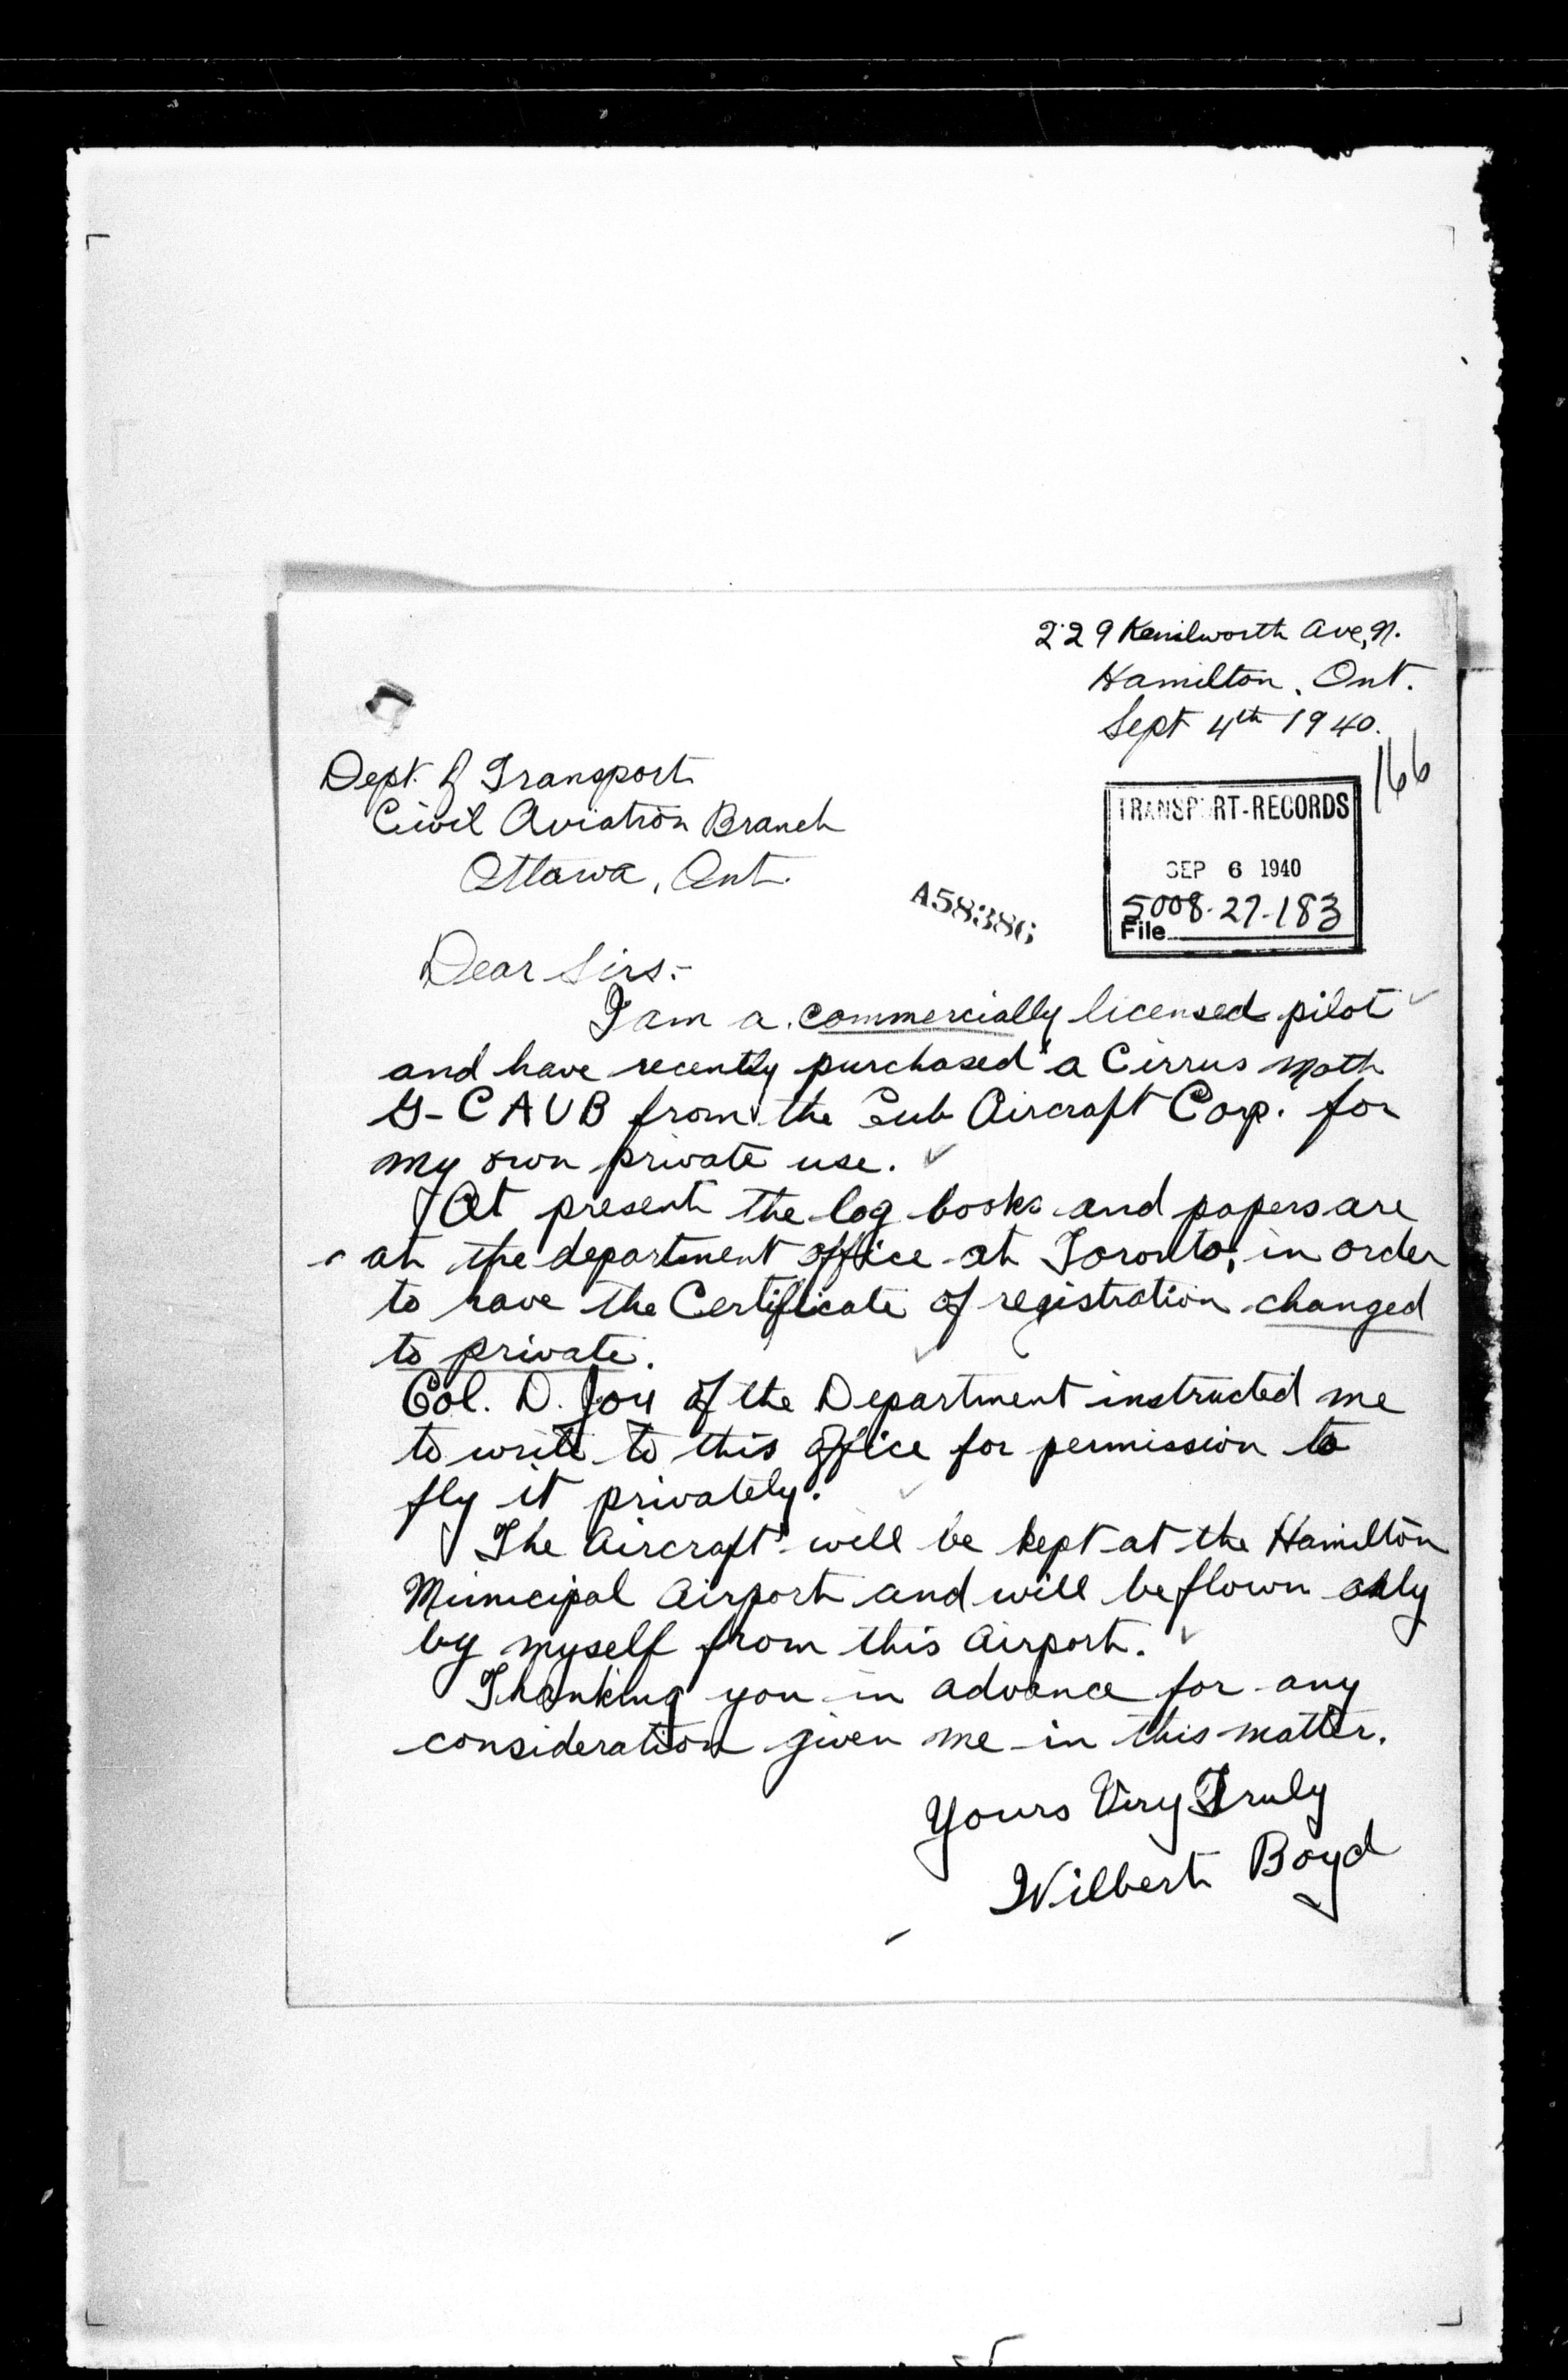 229 Kenilworth Ave, N.
Hamilton, Ont.
Sept 4th 1940.
166
Dept. of Transport
Civil Aviation Branch
Ottawa, Ont.
TRANSPORT-RECORDS
SEP 6 1940
5008-27-183
File
A58386
Dear Sirs:-
I am a commercially licensed pilot
and have recently purchased a Cirrus Moth
G-CAUB from the Cub Aircraft Corp. for
my own private use.
At present the log books and papers are
at the department office at Toronto, in order
to have the Certificate of registration changed
to private.
Col. D. Joy of the Department instructed me
to write to this office for permission to
fly it privately.
The Aircraft will be kept at the Hamilton
Municipal Airport and will be flown only
by myself from this Airport.
Thanking you in advance for any
consideration given me in this matter.
Yours Very Truly
Wilbert Boyd